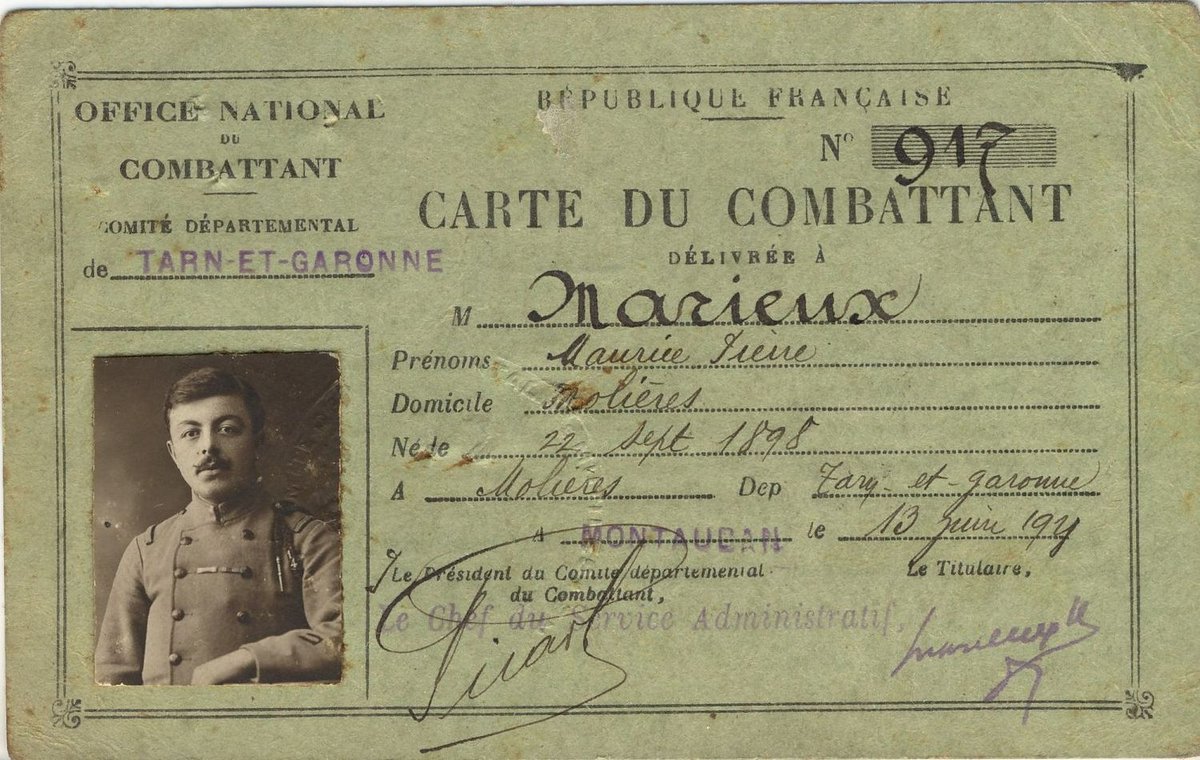 OFFICE NATIONAL
DU
COMBATTANT
COMITÉ DÉPARTEMENTAL
de TARN-ET-GARONNE
RÉPUBLIQUE FRANÇAISE
N° 917
CARTE DU COMBATTANT
DÉLIVRÉE À
M Marieux
Prénoms Maurice Pierre
Domicile Molières
Né le 22 Sept 1898
A Molières Dep Tarn-et-garonne
A MONTAUBAN le 13 juin
Le Président du Comité départemental
du Combattant,
Le Titulaire,
Le Chef du Service Administratif,